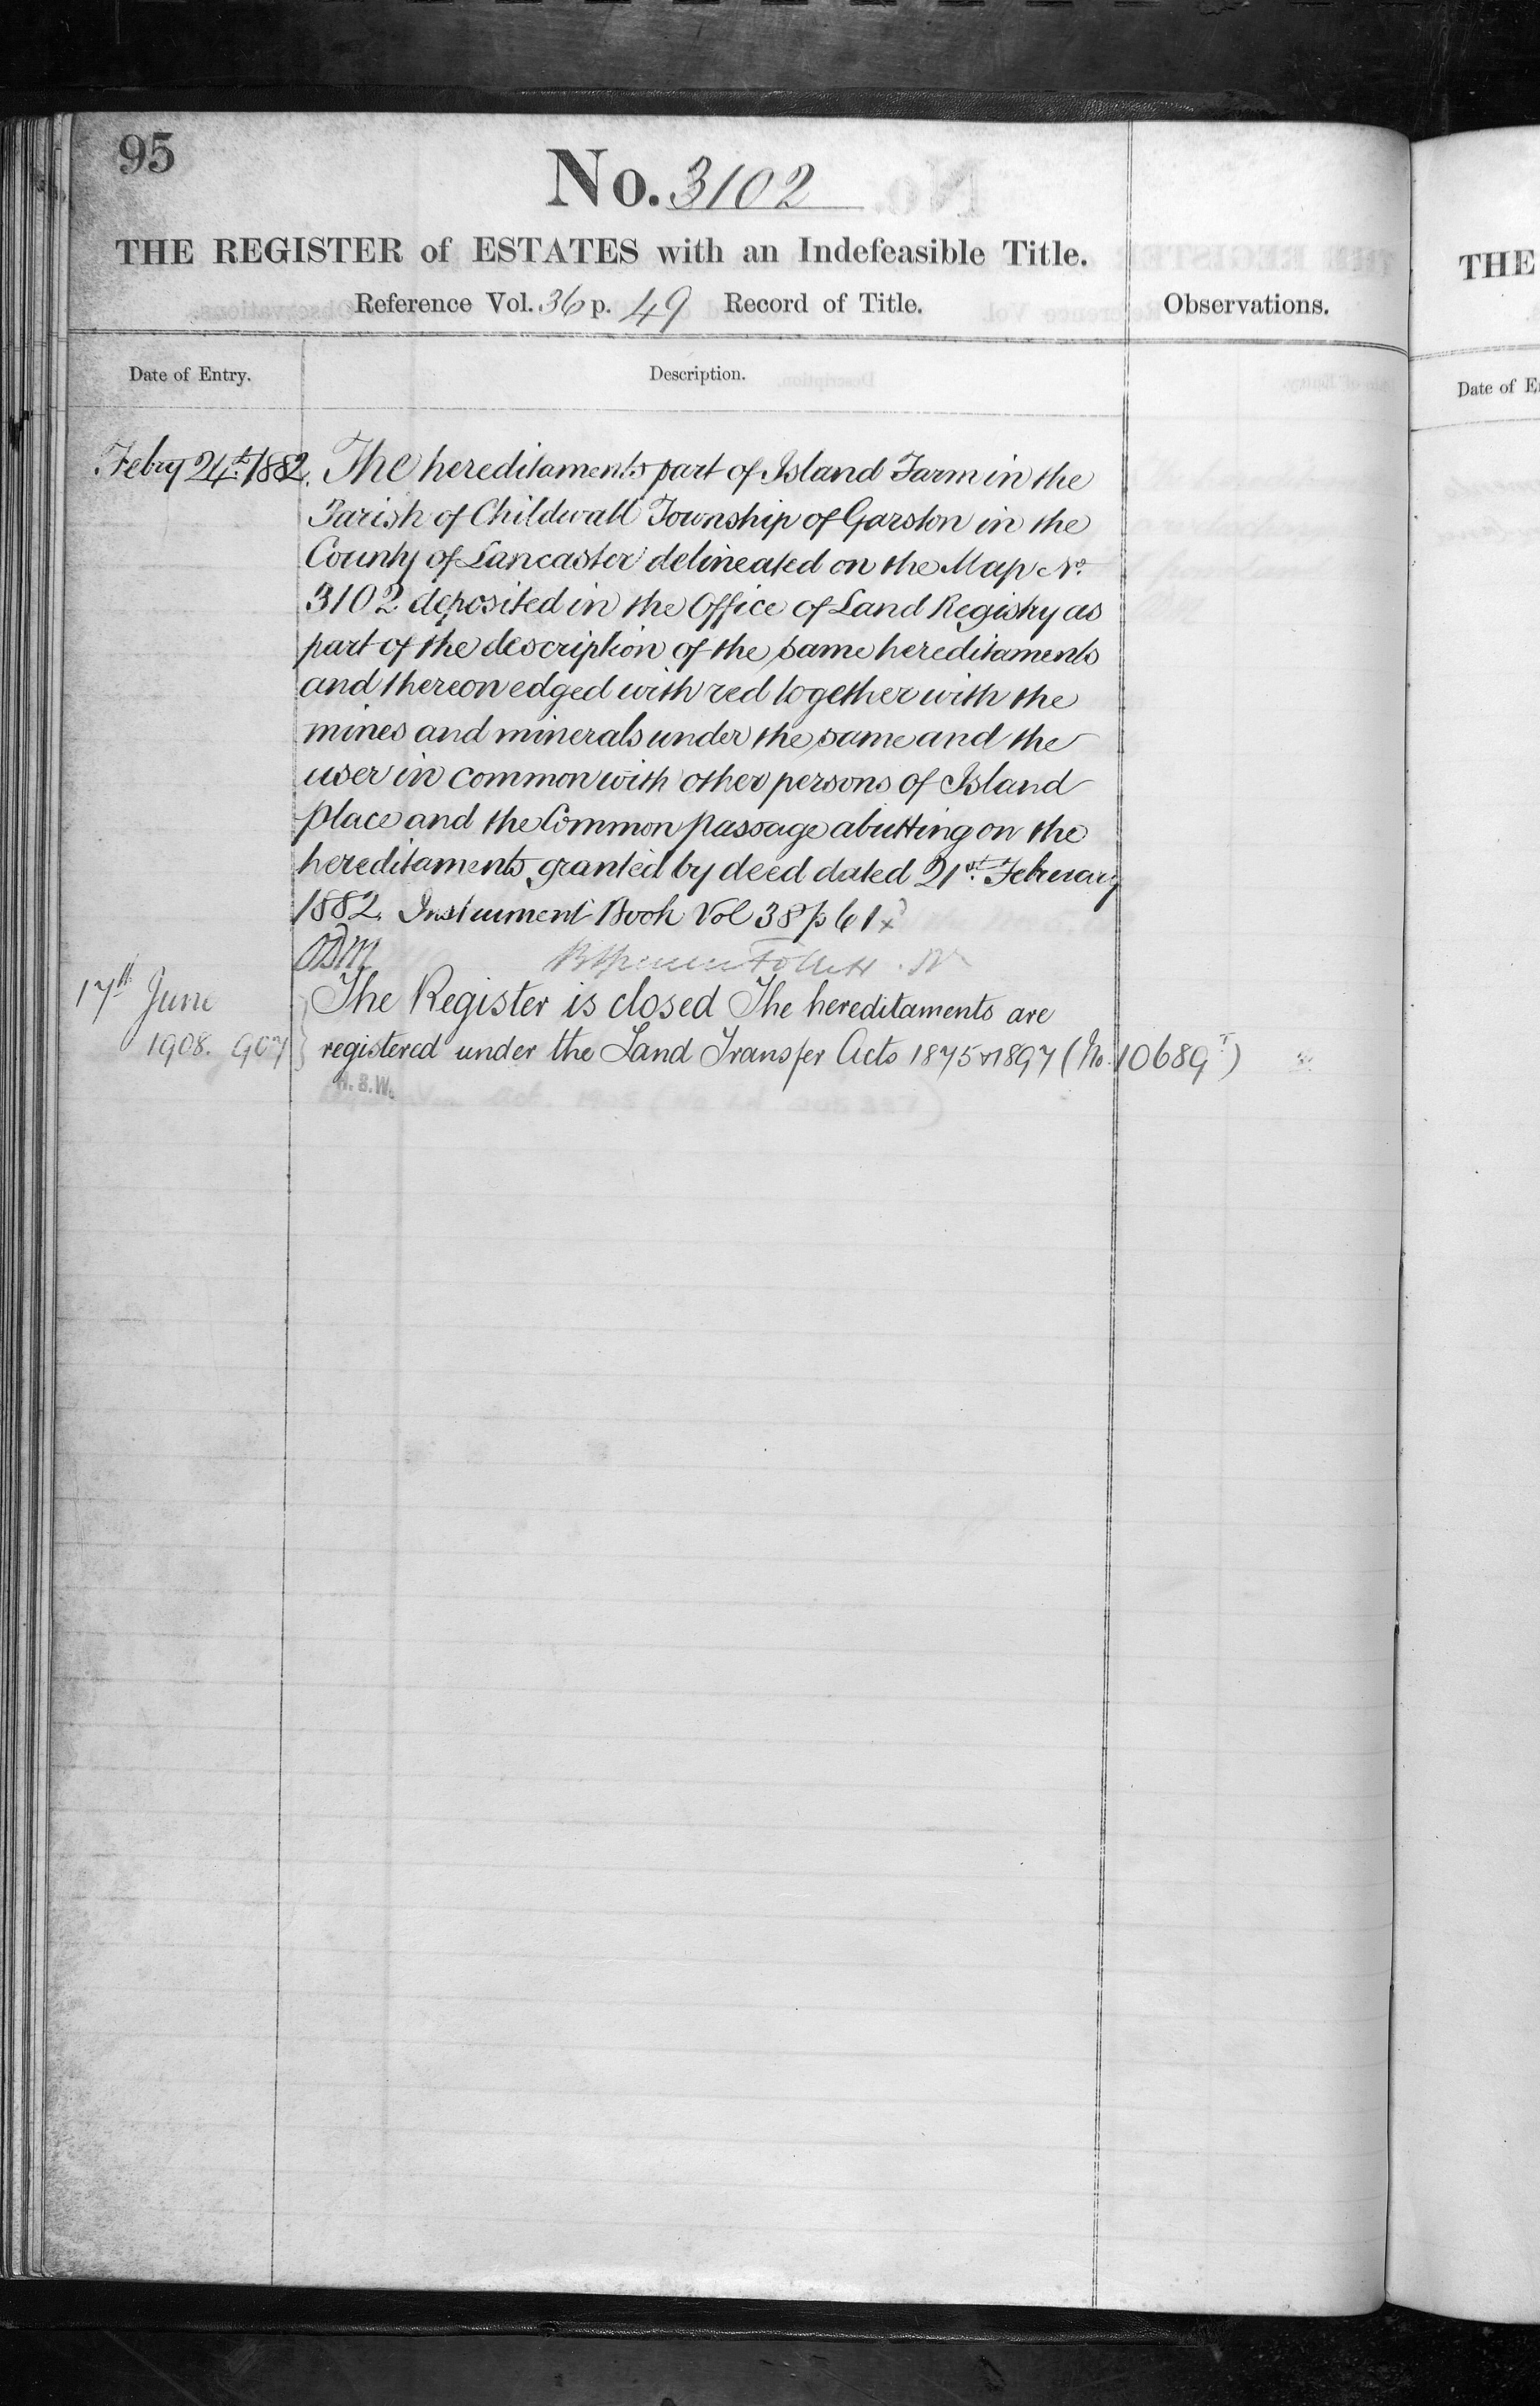 95
No. 3102
THE REGISTER of ESTATES with an Indefeasible Title.
Reference Vol. 36 p. 49 Record of Title.
Observations.
Date of Entry.
Description.
Febry 24th 1882. The hereditaments part of Island Farm in the
Parish of Childwall Township of Garston in the
County of Lancaster delineated on the Map No
3102 deposited in the Office of Land Registry as
part of the description of the same hereditaments
and thereon edged with red together with the
mines and minerals under the same and the
user in common with other persons of Island
place and the Common passage abutting on the
hereditaments granted by deed dated 21st February
1882. Instrument Book Vol 38 p 61
17th June The Register is closed The hereditaments are
1908. 907 registered under the Land Transfer Acts 1875 & 1897 (No. 10689)
H.B.W.
THE
Date of E